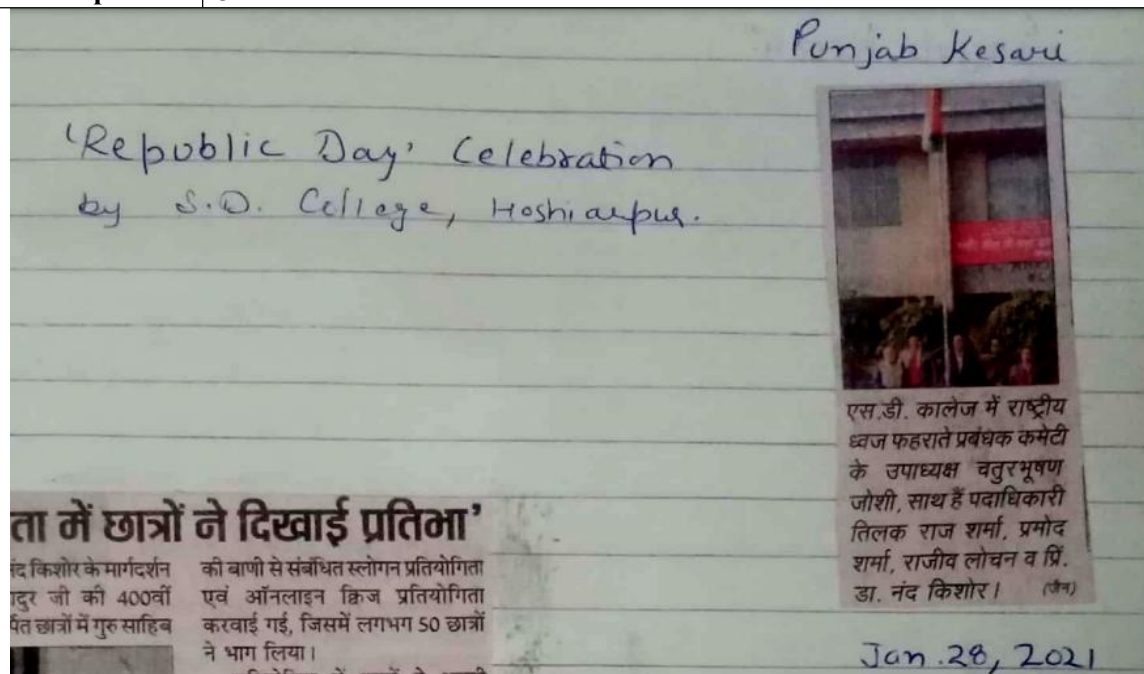 Punjab Kesari
'Republic Day' Celebration
by S.D. College, Hoshiarpur.
एस.डी. कालेज में राष्ट्रीय
ध्वज फहराते प्रबंधक कमेटी
के उपाध्यक्ष चतुरभूषण
जोशी, साथ हैं पदाधिकारी
तिलक राज शर्मा, प्रमोद
शर्मा, राजीव लोचन व प्रिं.
डा. नंद किशोर। (जैन)
Jan. 28, 2021
ता में छात्रों ने दिखाई प्रतिभा’
नंद किशोर के मार्गदर्शन
ादुर जी की 400वीं
र्पित छात्रों में गुरु साहिब
की बाणी से संबंधित स्लोगन प्रतियोगिता
एवं ऑनलाइन क्विज प्रतियोगिता
करवाई गई, जिसमें लगभग 50 छात्रों
ने भाग लिया।